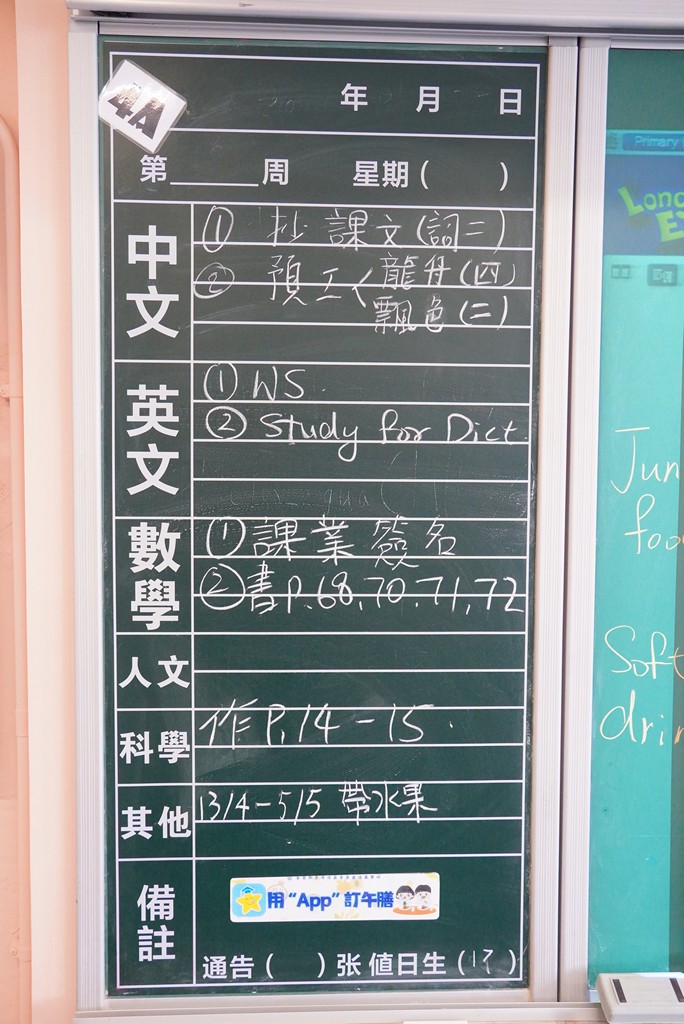 4A
年 月 日
第______周 星期( )
中文
① 抄 課文(詞二)
② 預工〈 龍舟(四)
飄色(二)
英文
① WS.
② Study for Dict.
數學
① 課業簽名
② 書P.68,70,71,72
人文
科學
作P.14-15.
其他
13/4-5/5 帶水果
備註
用“App”訂午膳
通告( )张 值日生(17)
Primary
Long
Jun
foo
Soft
drin